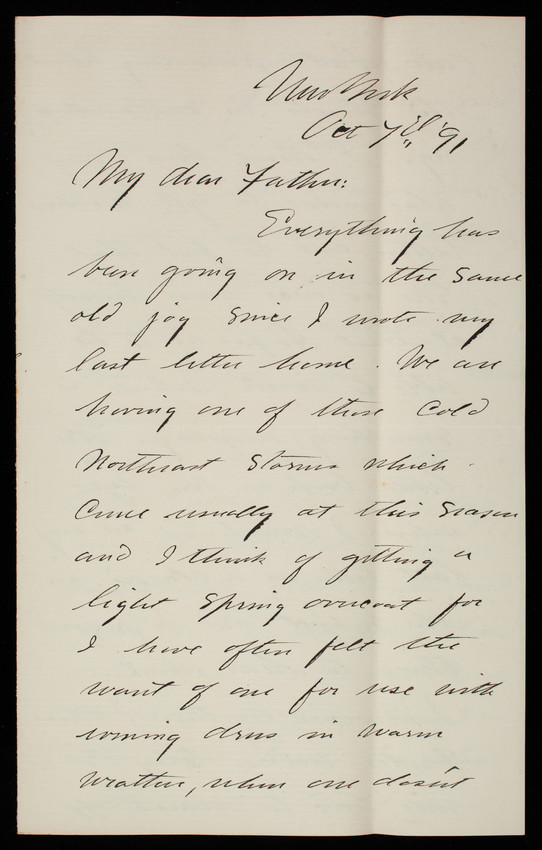 New York
Oct 7th, '91
My dear Father:
Everything has
been going on in the same
old jog since I wrote my
last letter home. We are
having one of those cold
Northeast storms which
come usually at this season
and I think of getting a
light spring overcoat for
I have often felt the
want of one for use with
evening dress in warm
weather, when one does'nt